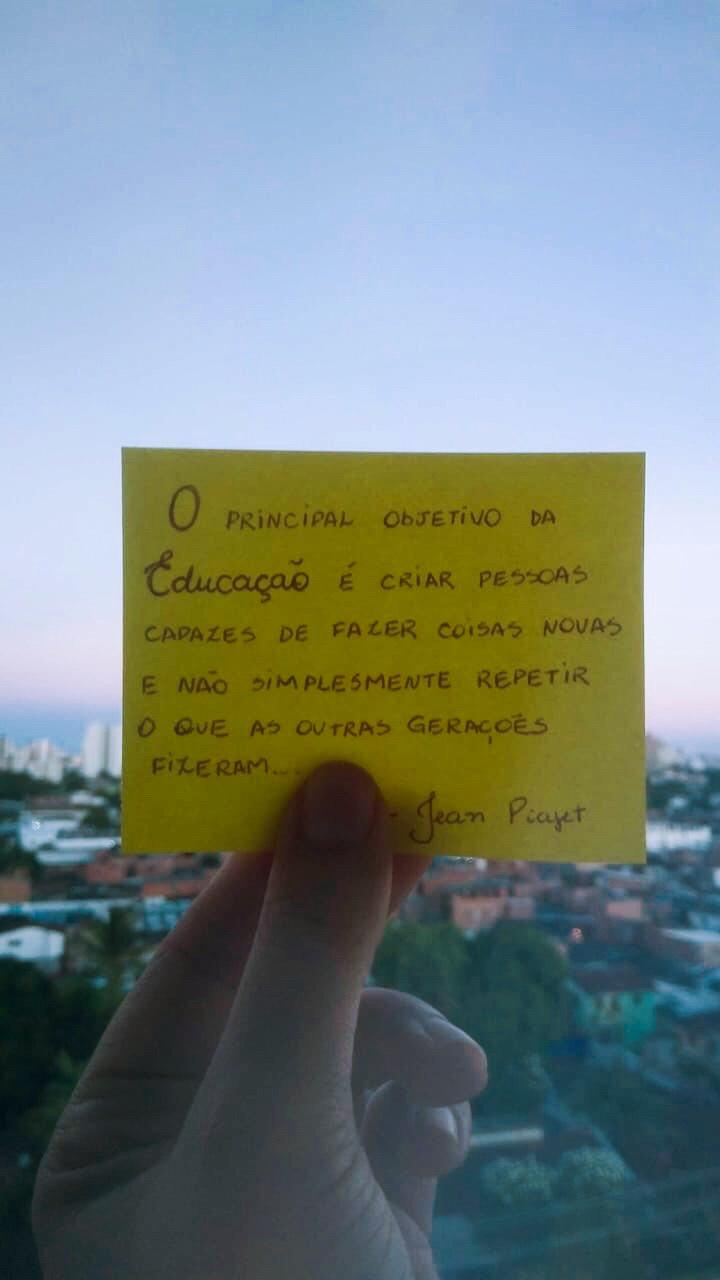 O PRINCIPAL OBJETIVO DA
Educação É CRIAR PESSOAS
CAPAZES DE FAZER COISAS NOVAS
E NÃO SIMPLESMENTE REPETIR
O QUE AS OUTRAS GERAÇÕES
FIZERAM...
- Jean Piajet